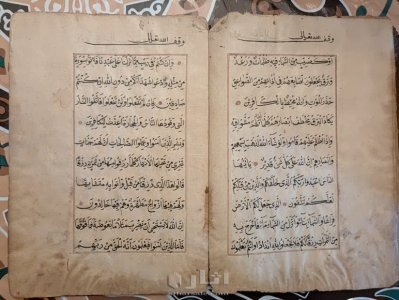 وقف لله تعالى
أو كصيب من السماء فيه ظلمات ورعد
وبرق يجعلون أصابعهم في آذانهم من الصواعق
حذر الموت والله محيط بالكافرين
يكاد البرق يخطف أبصارهم كلما أضاء لهم مشوا فيه
وإذا أظلم عليهم قاموا ولو شاء الله لذهب بسمعهم
وأبصارهم إن الله على كل شيء قدير يا أيها
الناس اعبدوا ربكم الذي خلقكم والذين من قبلكم
لعلكم تتقون الذي جعل لكم الأرض
فراشا والسماء بناء وأنزل من السماء ماء فأخرج به
من الثمرات رزقا لكم فلا تجعلوا لله أندادا وأنتم تعلمون
وقف لله تعالى
وإن كنتم في ريب مما نزلنا على عبدنا فأتوا بسورة
من مثله وادعوا شهداءكم من دون الله إن كنتم
صادقين فإن لم تفعلوا ولن تفعلوا فاتقوا النار
التي وقودها الناس والحجارة أعدت للكافرين
وبشر الذين آمنوا وعملوا الصالحات أن لهم جنات
تجري من تحتها الأنهار كلما رزقوا منها من ثمرة رزقا
قالوا هذا الذي رزقنا من قبل وأتوا به متشابها
ولهم فيها أزواج مطهرة وهم فيها خالدون
إن الله لا يستحيي أن يضرب مثلا ما بعوضة فما فوقها
فأما الذين آمنوا فيعلمون أنه الحق من ربهم